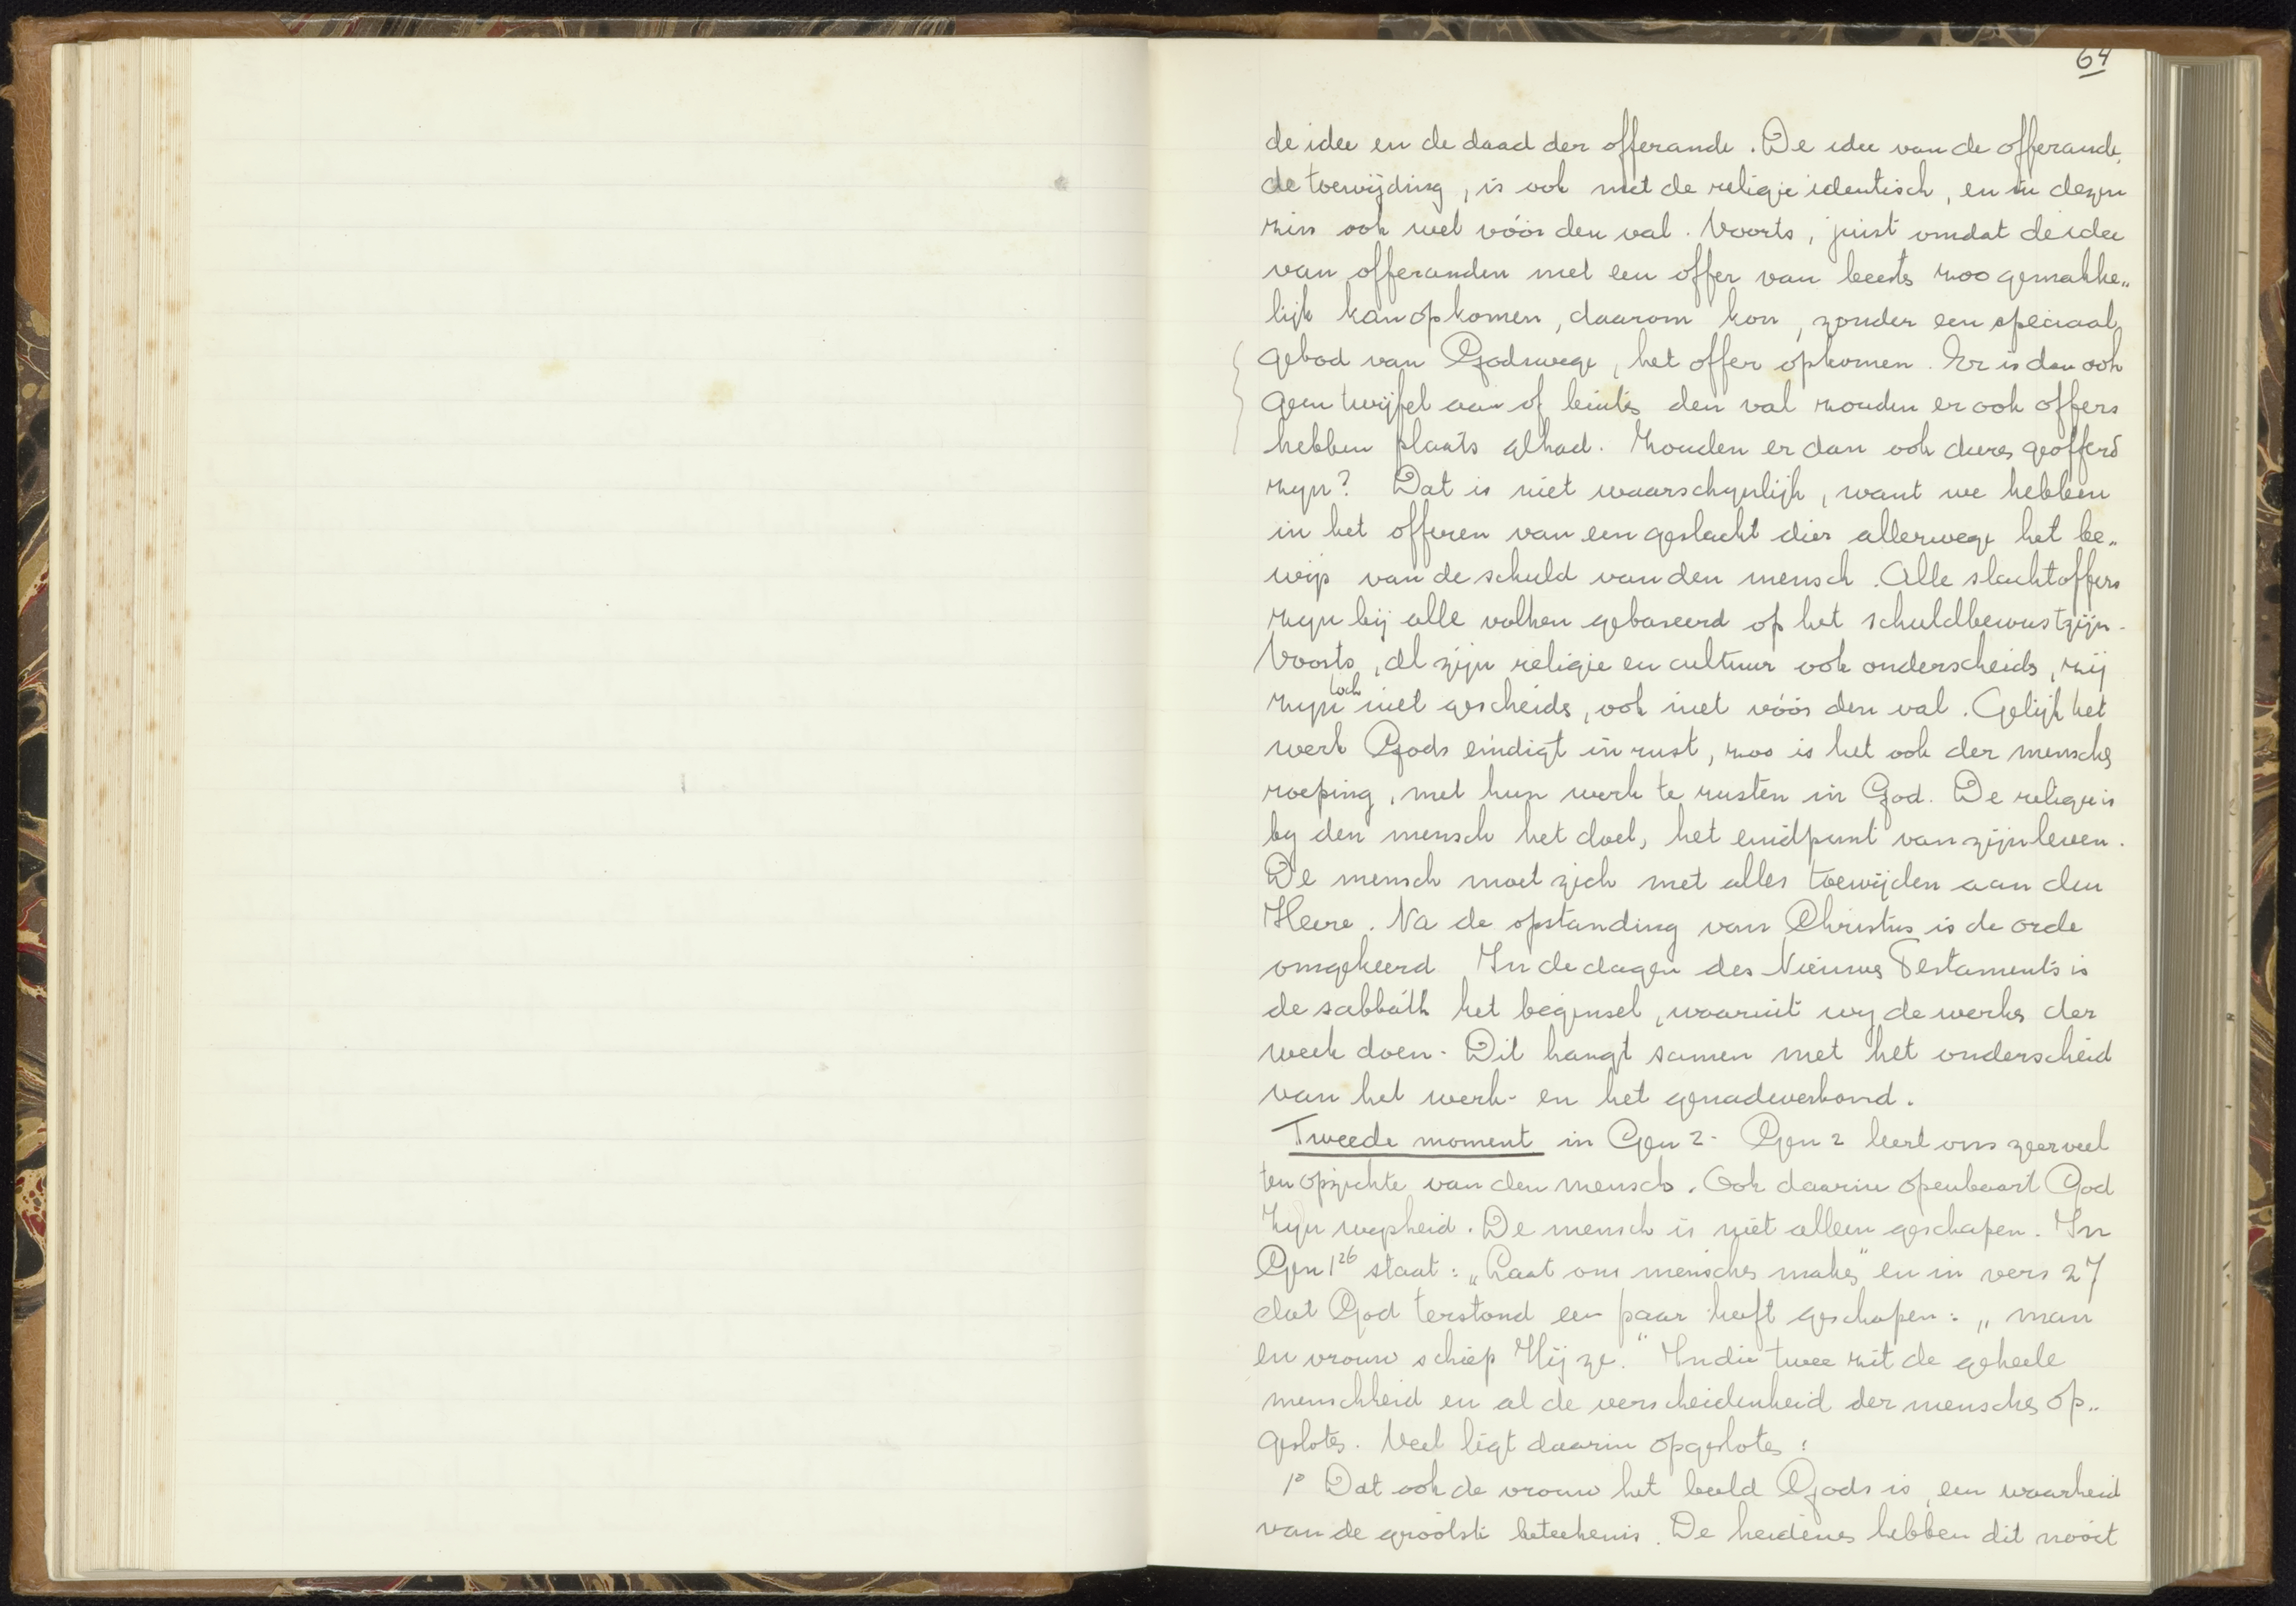 64
de idee en de daad der offerande. De idee van de offerande,
de toewijding, is ook met de religie identisch, en in dezen
zin ook wel vóór den val. Voorts, juist omdat de idee
van offeranden met een offer van beesten zoo gemakke„
lijk kan opkomen, daarom kon, zonder een speciaal
gebod van Godswege, het offer opkomen. Er is dan ook
geen twijfel aan of buiten den val zouden er ook offers
hebben plaats gehad. Zouden er dan ook dieren geofferd
zijn? Dat is niet waarschynlijk, want we hebben
in het offeren van een geslacht dier allerwege het be„
wijs van de schuld van den mensch. Alle slachtoffers
zijn bij alle volken gebaseerd op het schuldbewustzijn.
Voorts, al zijn religie en cultuur ook onderscheiden, zij
zijn toch niet gescheiden, ook niet vóór den val. Gelijk het
werk Gods eindigt in rust, zoo is het ook der menschen
roeping, met hun werk te rusten in God. De religie is
by den mensch het doel, het eindpunt van zijn leven.
De mensch moet zich met alles toewijden aan den
Heere. Na de opstanding van Christus is de orde
omgekeerd In de dagen des Nieuwen Testaments is
de sabbath het beginsel, waaruit wy de werken der
week doen. Dit hangt samen met het onderscheid
van het werk- en het genadeverbond.
Tweede moment in Gen 2. Gen 2 leert ons zeer veel
ten opzichte van den mensch. Ook daarin openbaart God
Zijn wijsheid. De mensch is niet alleen geschapen. In
Gen 1²⁶ staat: „Laat ons menschen maken" en in vers 27
dat God terstond een paar heeft geschapen: „man
en vrouw schiep Hij ze." In die twee zit de geheele
menschheid en al de verscheidenheid der menschen op„
gesloten. Veel ligt daarin opgesloten:
1° Dat ook de vrouw het beeld Gods is, een waarheid
van de grootste beteekenis. De heidenen hebben dit nooit